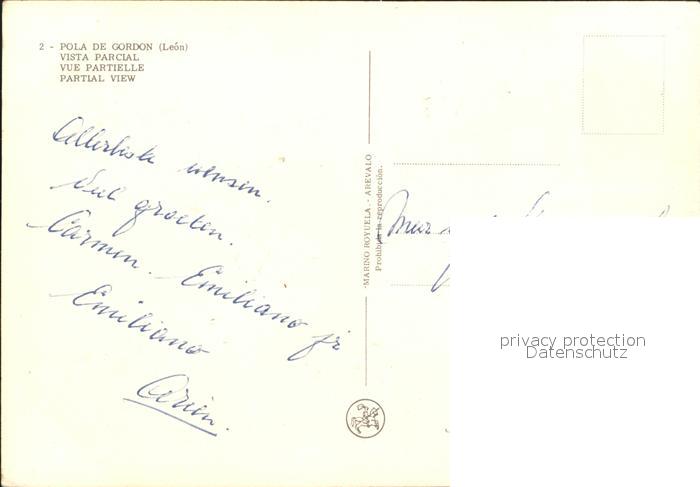 2 - POLA DE GORDON (León)
VISTA PARCIAL
VUE PARTIELLE
PARTIAL VIEW
Allerbeste wensen.
Veel groeten.
Carmen. Emiliano jr
Emiliano
MARINO ROYUELA. - AREVALO
Prohibida la reproducción.
privacy protection
Datenschutz